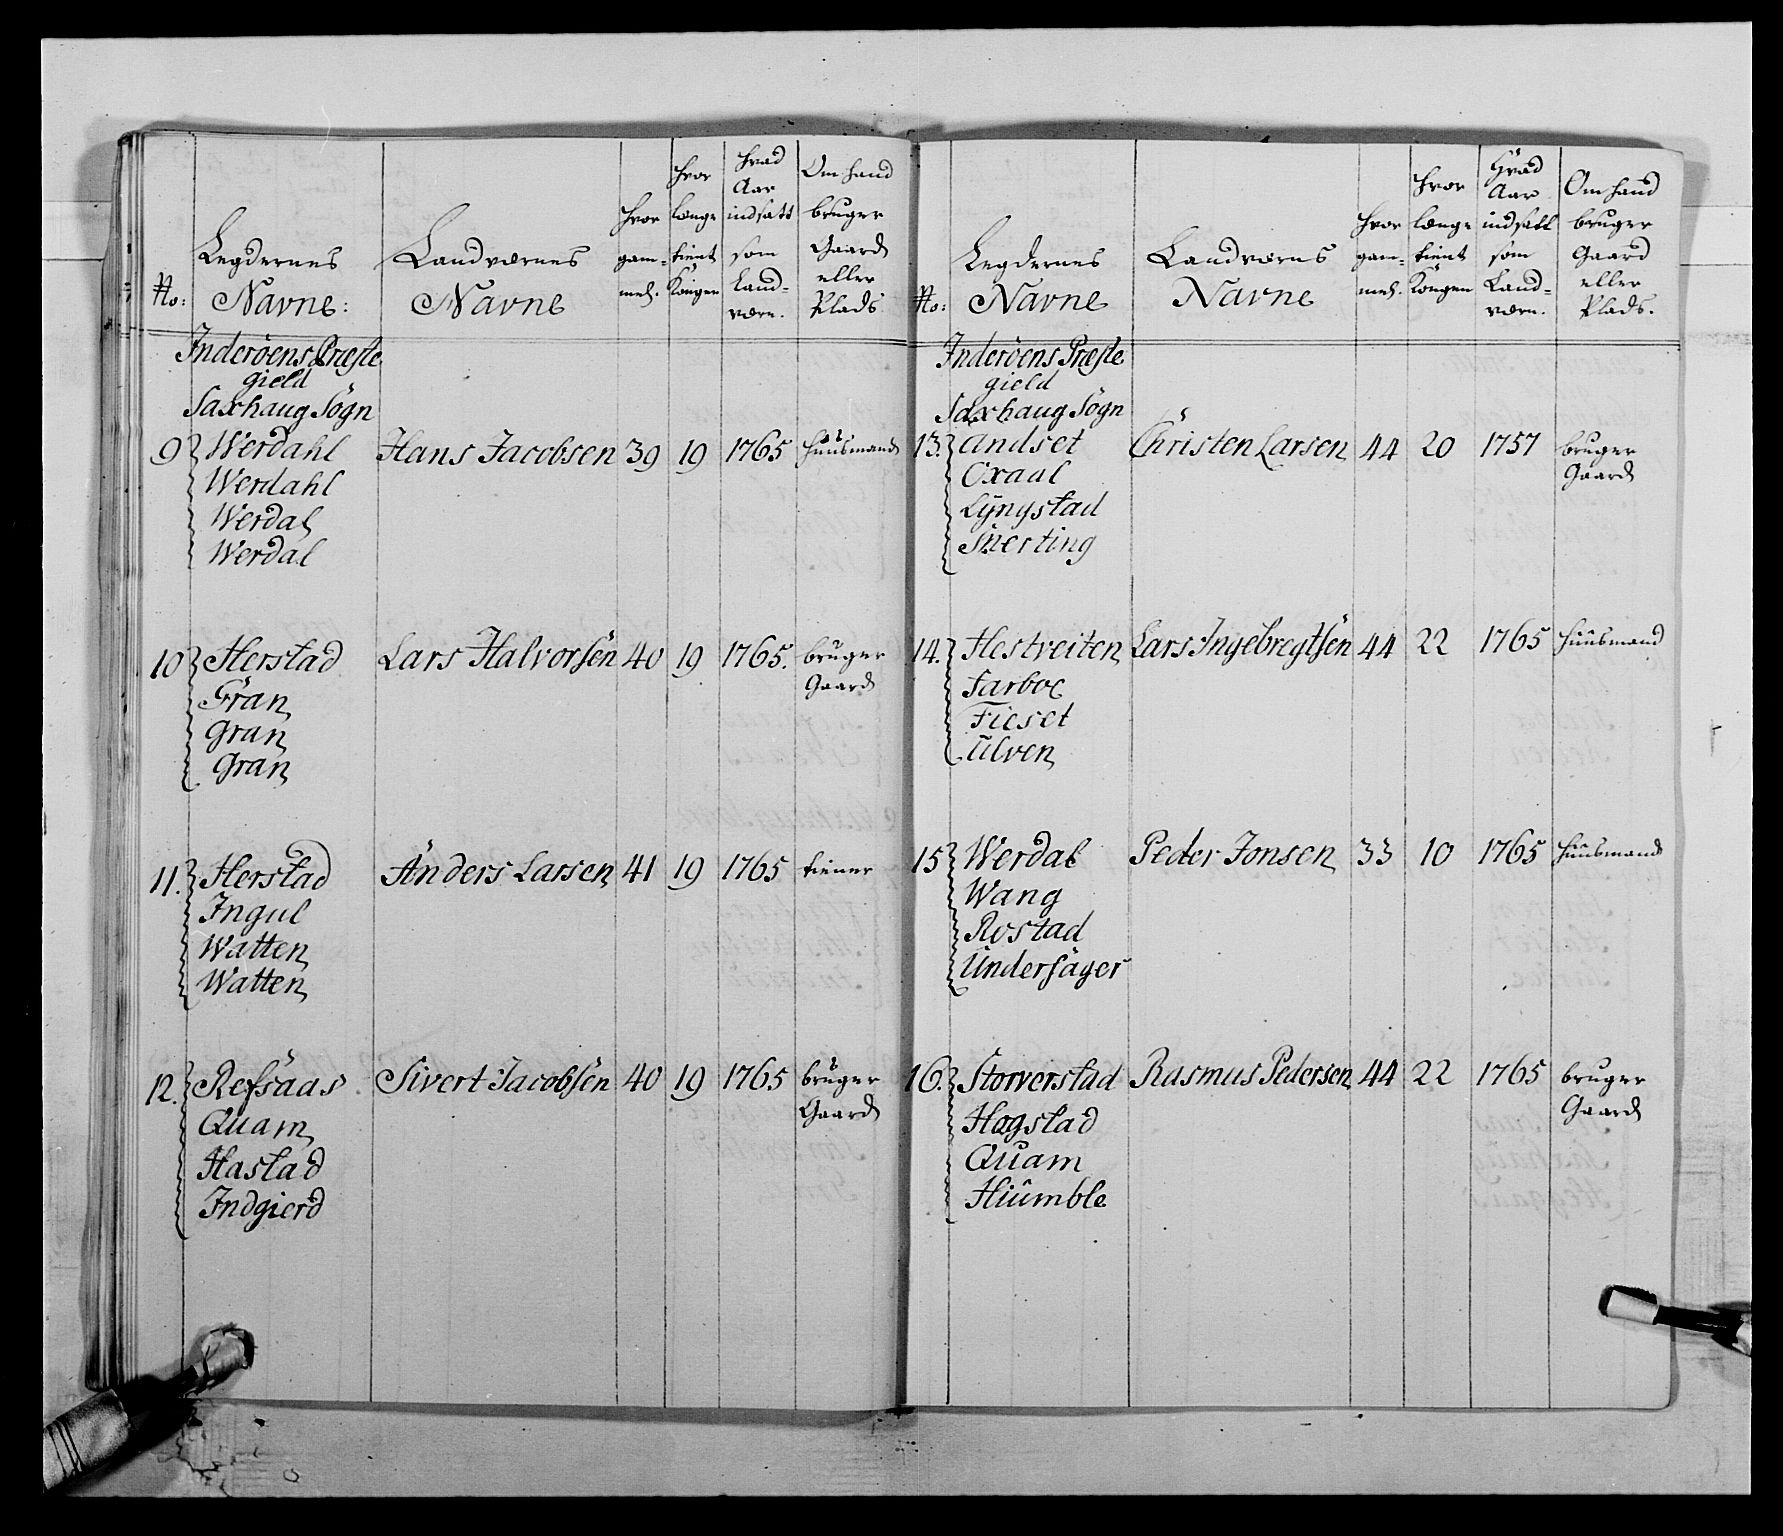 No: Legdernes Navne: Landværnes Navne hvor gam- mel. hvor længe tient Kongen hvad Aar indsatt som Land- værn. Om hand bruger Gaard eller Plads
Inderöens Præste
gield
Saxhaug Sögn
9 Werdahl Hans Jacobsen 39 19 1765 huusmand
Werdahl
Werdal
Werdal
10 Herstad Lars Halvorsen 40 19 1765. bruger
Gran Gaard
Gran
Gran
11. Herstad Anders Larsen 41 19 1765 tiener
Ingul
Watten
Watten
12. Refsaas Sivert Jacobsen 40 19 1765 bruger
Quam Gaard
Hastad
Indgierd
No: Legdernes Navne Landværns Navne hvor gam- mel. hvor længe tient Kongen Hvad Aar indsatt som Land- værn. Om hand bruger Gaard eller Plads.
Inderöens Præste
gield
Saxhaug Sögn
13. Andset Christen Larsen 44 20 1757 bruger
Oxaal Gaard
Lyngstad
Snerting
14. Hestveiten Lars Ingebregtsen 44 22 1765 huusmand
Farboe
Fieset
Ulven
15 Werdal Peder Jonsen 33 10 1765 huusmand
Wang
Rostad
Undersåger
16. Storverstad Rasmus Pedersen 44 22 1765 bruger
Hogstad Gaard
Quam
Hiumble